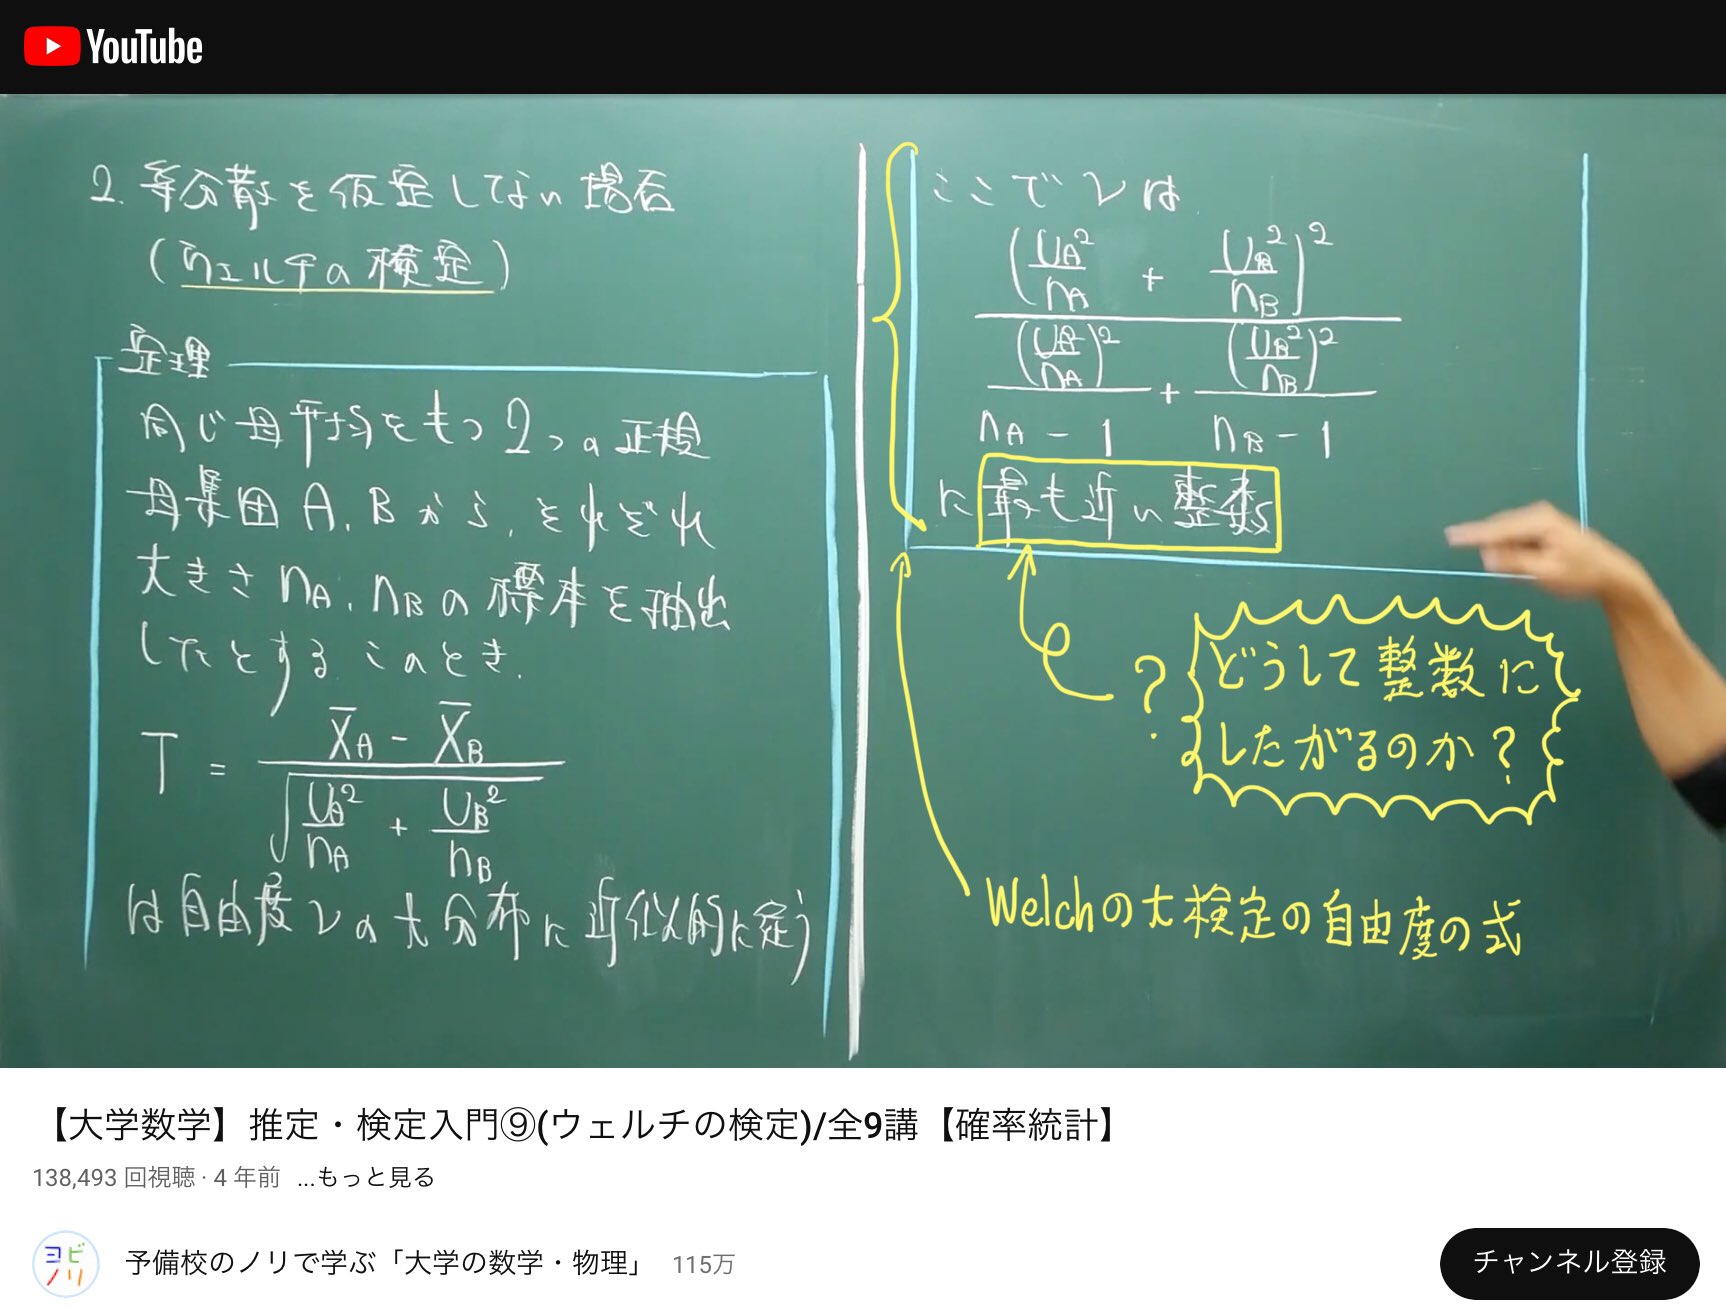 YouTube
2. 等分散を仮定しない場合
(ウェルチの検定)
定理
同じ母平均をもつ2つの正規
母集団A, Bから, それぞれ
大きさnA, nBの標本を抽出
したとする このとき.
T = (X̄A - X̄B) / √(UA²/nA + UB²/nB)
は自由度νのt分布に近似的に従う
ここでνは
(UA²/nA + UB²/nB)² / ((UA²/nA)²/(nA-1) + (UB²/nB)²/(nB-1))
に最も近い整数
?
どうして整数に
したがるのか?
Welchのt検定の自由度の式
【大学数学】推定・検定入門⑨(ウェルチの検定)/全9講【確率統計】
138,493 回視聴・4 年前 ...もっと見る
ヨビ
ノリ
予備校のノリで学ぶ「大学の数学・物理」 115万
チャンネル登録